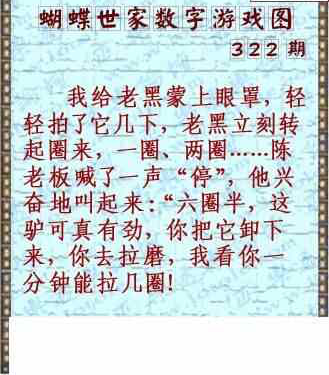 蝴蝶世家数字游戏图
322期
我给老黑蒙上眼罩，轻
轻拍了它几下，老黑立刻转
起圈来，一圈、两圈……陈
老板喊了一声“停”，他兴
奋地叫起来：“六圈半，这
驴可真有劲，你把它卸下
来，你去拉磨，我看你一
分钟能拉几圈！